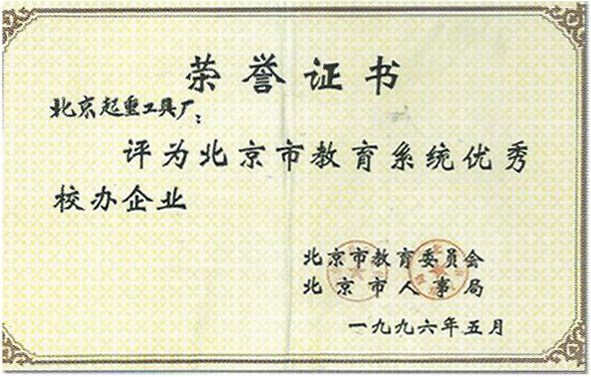 荣誉证书
北京起重工具厂：
评为北京市教育系统优秀
校办企业
北京市教育委员会
北京市人事局
一九九六年五月